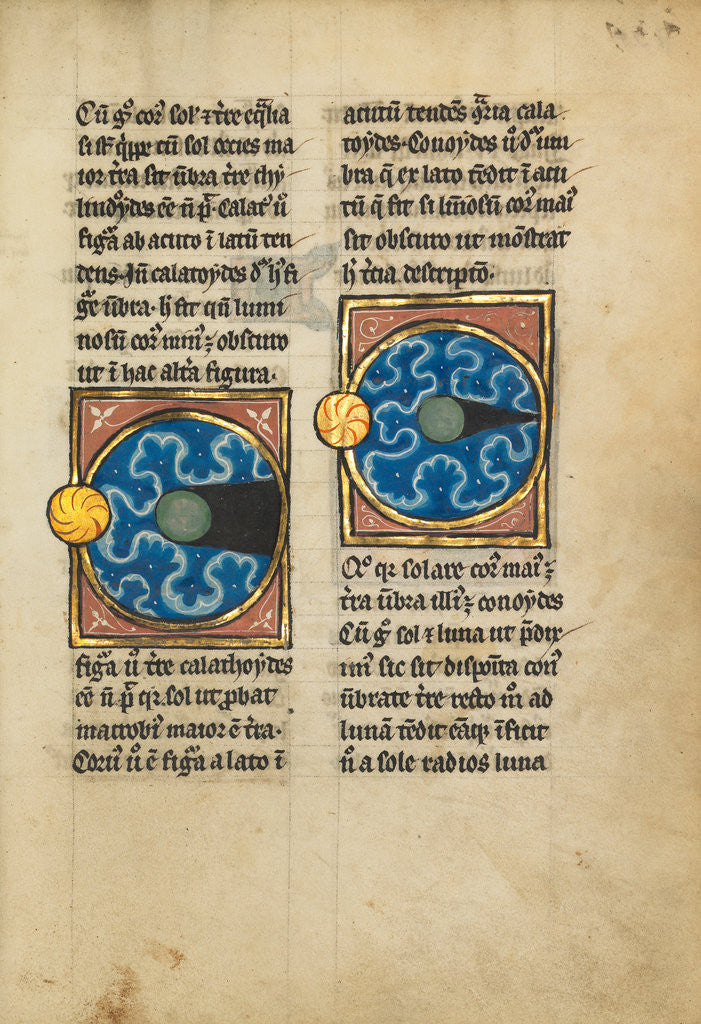 Cū g̊ corꝰ sol' ⁊ t̄re eq̄lia
si s̄t q̄ppe cū sol octies ma
ior t̄ra sit ūbra t̄re chy
lindꝰoydes eē n̄ p̄. Calat' ū
figᷓa ab acuto ī latū ten
dens. Jn̄ calatoydes dʳ hꝰ fi
gᷓe ūbra. h̄ fit qn̄ lumi
nosū corꝰ minꝰ ꝫ obscuro
ut ī hac alt̄a figura.
figᷓa ū t̄re calathoydes
eē n̄ p̄ qꝛ sol ut ꝓbat
macrobiꝰ maior ē t̄ra.
Corū ū ē figᷓa a lato ī
acutū tendēs ꝯ̄ria cala
toydes. Conoydes ū dʳ um
bra q̄ ex lato tēdit ī acu
tū q̄ fit si lm̄osū corꝰ maiꝰ
sit obscuro ut mōstrat
h̄ t̄cia descriptō.
qꝛ solare corꝰ maiꝰ ꝫ
t̄ra ūbra illiꝰ ꝫ conoydes
Cū g̊ sol ⁊ luna ut p̄dix
imꝰ sic sit disponta con
ūbrate t̄re recto m̊ ad
lunā tēdit eāqꝫ īficit
n̄ a sole radios luna